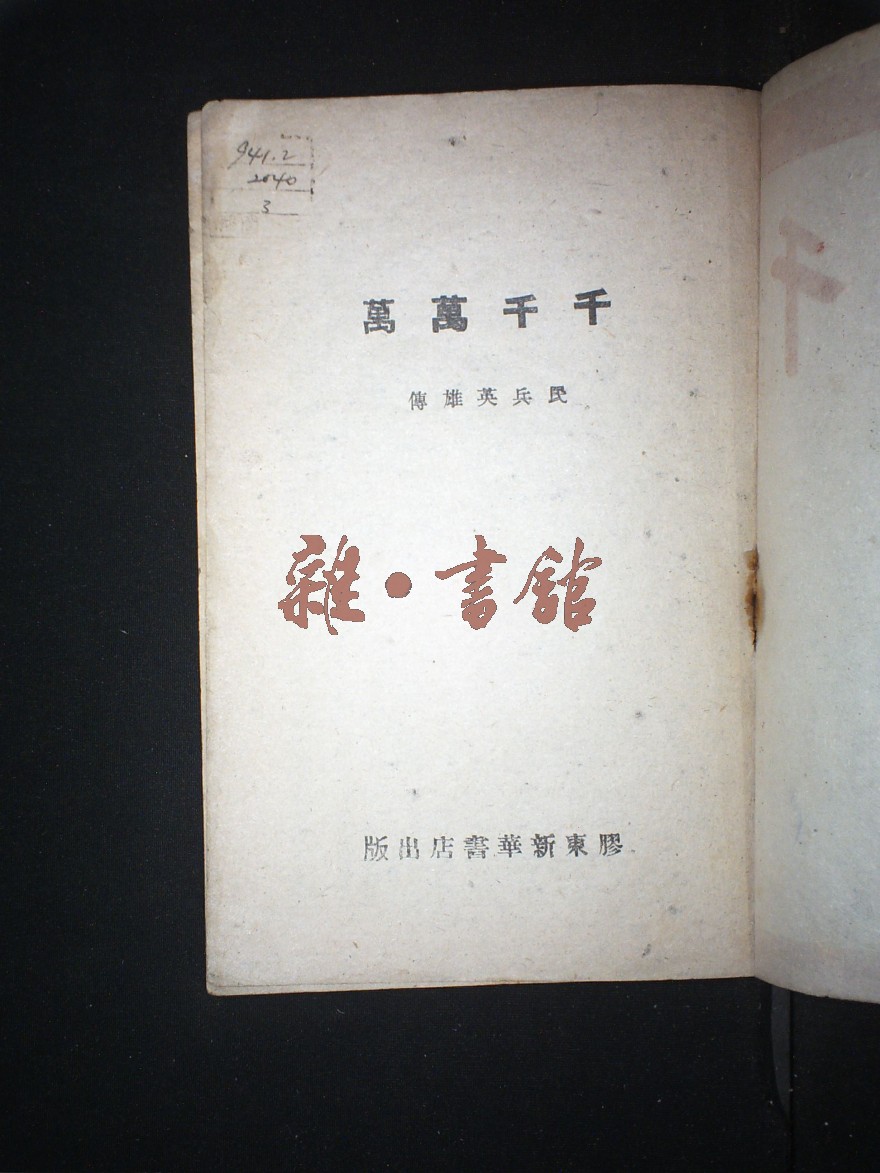 941.2
2040
3
千千萬萬
民兵英雄傳
雜•書館
膠東新華書店出版
千